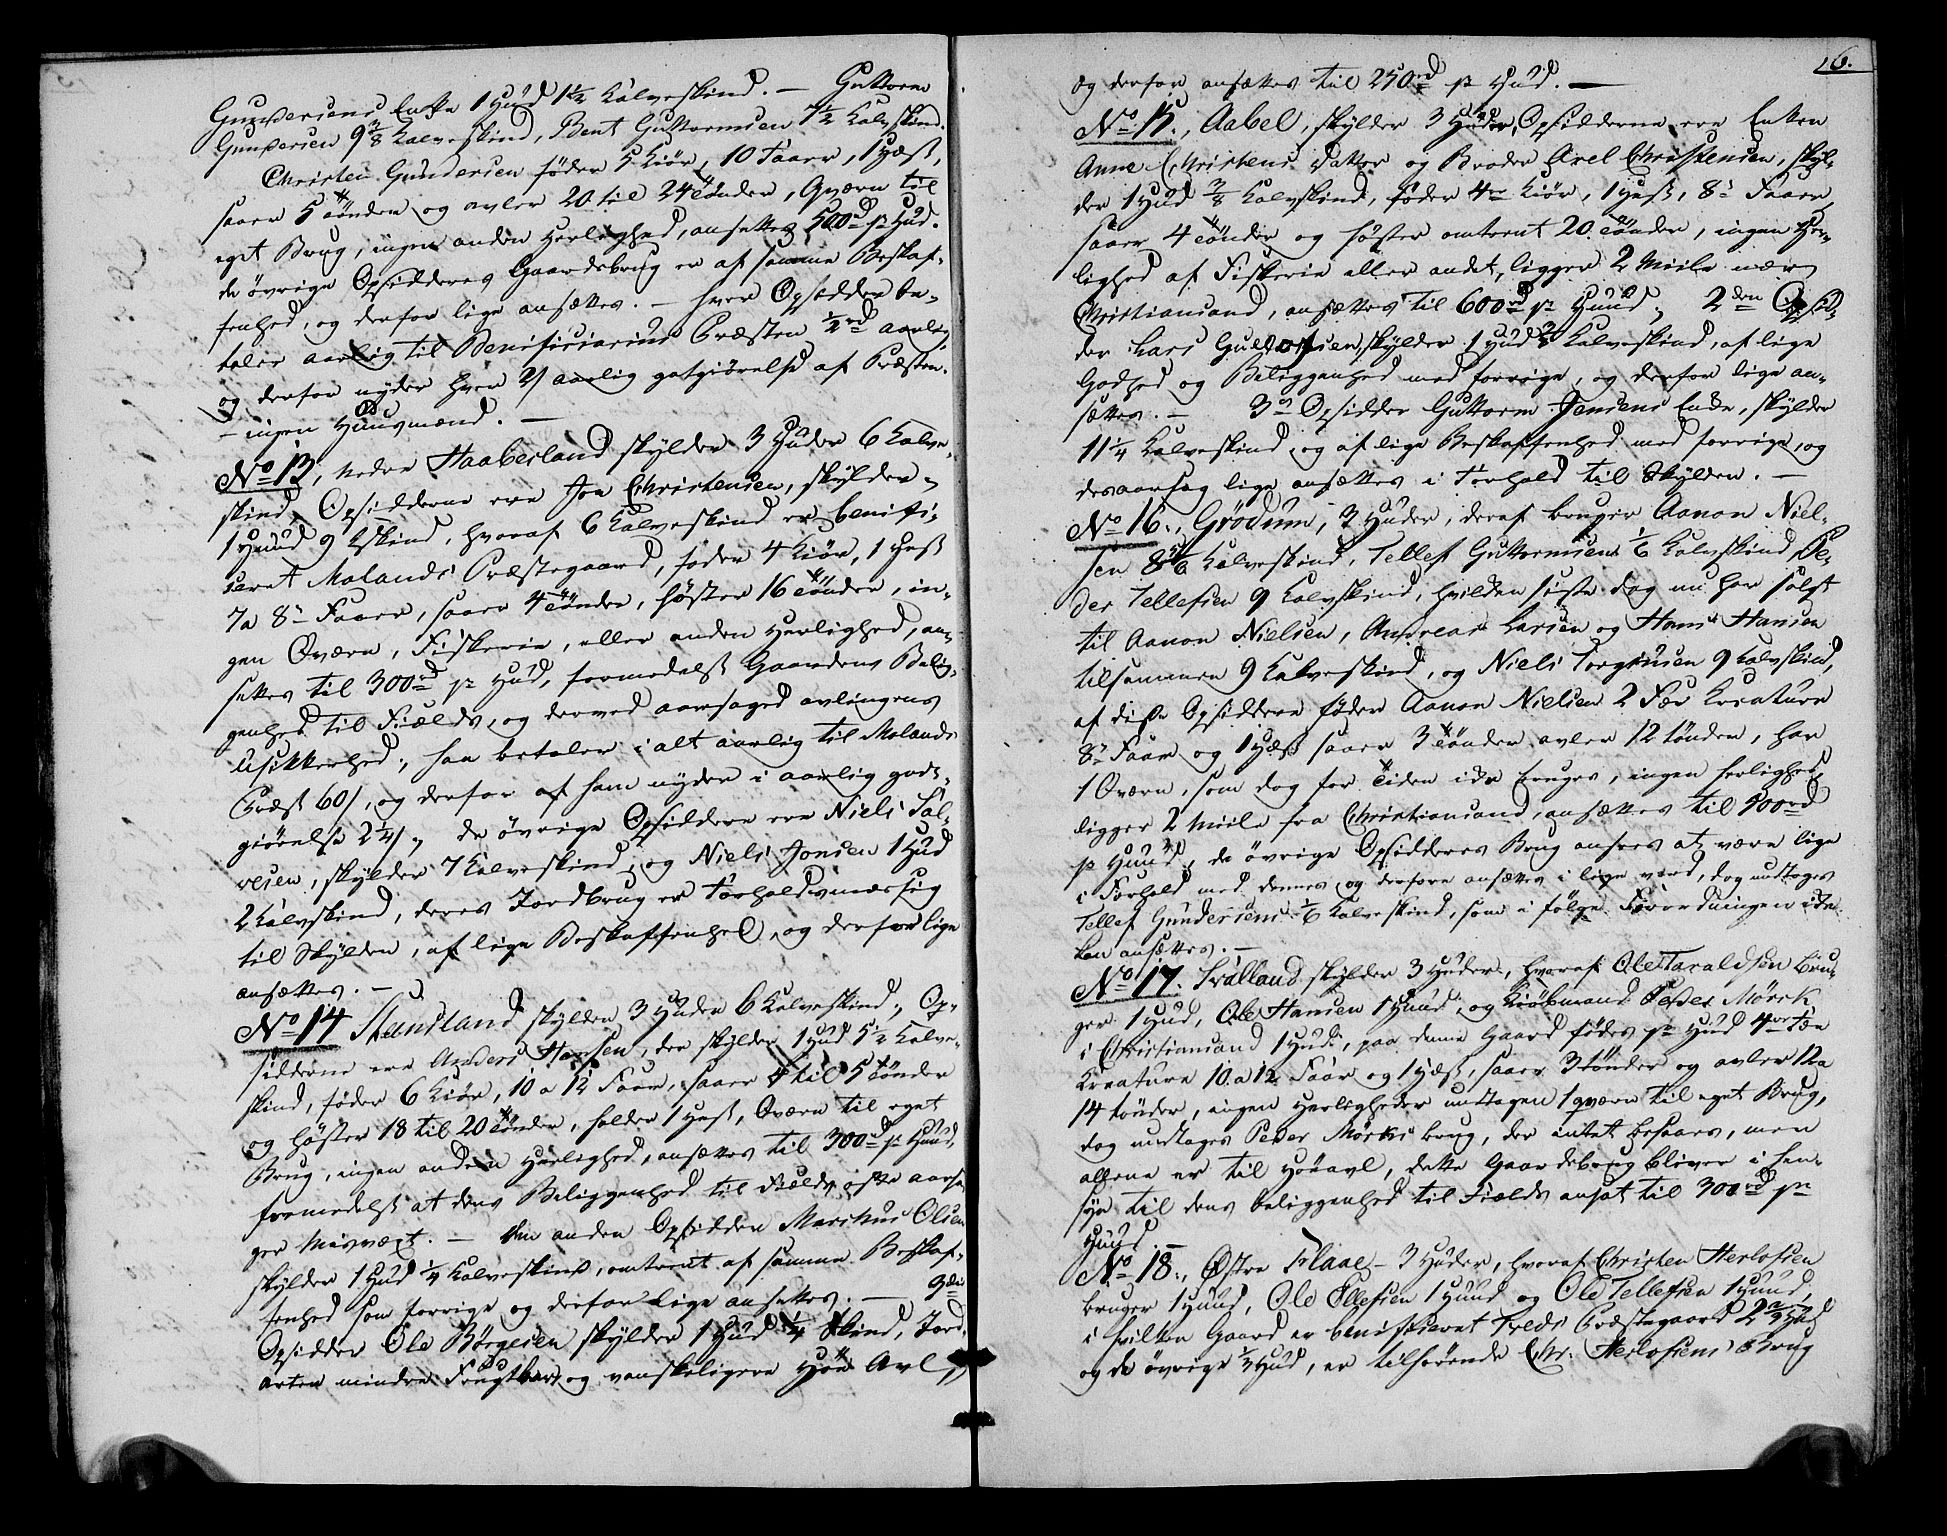 Gundersens Enke 1 Huud 1 1/2 Kalveskind. — Guttorm
Gundersen 9 3/8 Kalveskind, Bent Guttormsen 7 1/2 Kalvskind.
Christen Gundersen føder 5 Kiør, 10 Faar, 1 Hest,
saaer 5 Tønder og avler 20 til 24 Tønder, Qværn til
eget Brug, ingen anden Herlighed, ansettes 500rd pr Hud.
de øvrige Opsidderes Gaardsbrug er af samme Beskaf-
fenhed, og derfor lige ansættes. — hver Opsidder be-
taler aarlig til Beneficiarius Præsten 1/2 rd aarlig
og derfor nyder hver 2/ aarlig godtgiørelse af Præsten.
— ingen Huusmænd. —
No 13, nedre Haaberland skylder 3 Huder 6 Kalve-
skind, Opsidderne ere Jon Christensen, skylder
1 Huud 9 skind, hvoraf 6 Kalveskind er benifi-
ceret Molands Præstegaard, føder 4 Kiør, 1 Hest
7 a 8 Faar, saaer 4 Tønder, høster 16 Tønder, in-
gen Qværn, Fiskerie, eller anden Herlighed, an-
settes til 300rd pr Hud, formedelst Gaardens Belig-
genhed til Fields, og derved aarsaged avlingens
Usikkerhed; han betaler i alt aarlig til Molands
Præst 60/, og derfor af ham nyder i aarlig godt-
giørelse 2 1/4/, de øvrige Opsiddere ere Niels Sal-
vesen, skylder 7 Kalveskind, og Niels Jonsen 1 Hud
2 Kalvskind, deres Jordbrug er forholdsmæssig
til Skylden, af lige Beskaffenhed, og derfor lige
ansættes. —
No 14 Standland skylder 3 Huder 6 Kalveskind; Op-
sidderne ere Anders Hansen, der skylder 1 Hud 5 1/2 Kalve-
skind, føder 6 Kiør, 10 a 12 Faar, saaer 4 til 5 Tønder
og høster 18 til 20 Tønder, holder 1 Hest, Qværn til eget
Brug, ingen anden Herlighed, ansættes til 300rd pr Huud,
formedelst at dens Beliggenhed til Fields ofte aarsa-
ger Misvæxt. — Den anden Opsidder Marthus Olsen
skylder 1 Hud 1/4 Kalveskind, omtrent af samme Beskaf-
fenhed som forrige og derfor lige ansettes. — 3die
Opsidder Ole Børgesen skylder 1 Hud 1/4 Skind, Jord-
arten mindre Frugtbar og vanskeligere Høe Avl,
6.
og derfor ansættes til 250rd pr Hud. —
No 15., Aabel, skylder 3 Huder, Opsidderne ere Enken
Anne Christens Datter og Broder Axel Christensen, skyl-
der 1 Hud 3/8 Kalvskind, føder 4re Kiør, 1 Hest, 8 Faar,
saaer 4 Tønder og høster omtrent 20 Tønder, ingen Her-
lighed af Fiskerie eller andet, ligger 2 Miile nær
Christiansand, ansættes til 600rd pr Huud, 2den Opsid-
der Lars Gullofsen, skylder 1 Hud 3/8 Kalveskind, af lige
Godhed og Beliggenhed med forrige, og derfor lige an-
sættes. — 3die Opsidder Guttorm Jensens Enke, skylder
11 1/4 Kalveskind, og af lige Beskaffenhed med forrige, og
desaarsag lige ansættes i Forhold til Skylden. —
No 16., Grødum, 3 Huder, deraf bruger Aanon Niel-
sen 8 5/6 Kalveskind, Tellef Guttormsens 1/6 Kalvskind, Pe-
der Tellefsen 9 Kalvskind, hvilken sidste dog nu har solgt
til Aanon Nielsen, Andreas Larsen og Hans Hansen
tilsammen 9 Kalveskind, og Niels Torgiusen 9 Kalvskind,
af disse Opsiddere føder Aanon Nielsen 2 Fæe Kreature
8 Faar og 1 Hest saaer 3 Tønder avler 12 tønder, har
1 Qværn, som dog for Tiden icke bruges, ingen herlighed,
ligger 2 Miile fra Christiansand, ansættes til 500rd
pr Huud, de øvrige Opsidderes Brug ansees at være lige
i Forhold med dennes og derfore ansættes i lige værd, dog undtages
Tellef Gundersens 1/6 Kalveskind, som i følge Forordningen icke
kan ansættes. —
No 17. Fralland skylder 3 Huder, hvoraf Ole Taraldsen bru-
ger 1 Hud, Ole Hansen 1 Huud, og Kiøbmand Peder Mørck
i Christiansand 1 Hud, paa denne Gaard fødes pr Hud 4re Fæe
Kreature 10 a 12 Faar og 1 Hest, saaer 3 tønder og avler 12 a
14 tønder, ingen Herligheder undtagen 1 qværn til eget Brug,
dog undtages Peder Mørks brug, der intet besaaes, men
allene er til Høeavl, dette Gaardsbrug bliver i hen-
syn til dens beliggenhed til Fields ansat til 300rd pr
Huud. —
No 18., Østre Flaae — 3 Huder, hvoraf Christen Herlofsen
bruger 1 Huud, Ole Ellefsen 1 Huud og Ole Tellefsen 1 Huud,
i hvilken Gaard er benificeret Treds Præstegaard 2 2/3 Hud
og de øvrige 1/3 Hud, er tilhørende Chr. Herlofsens Brug